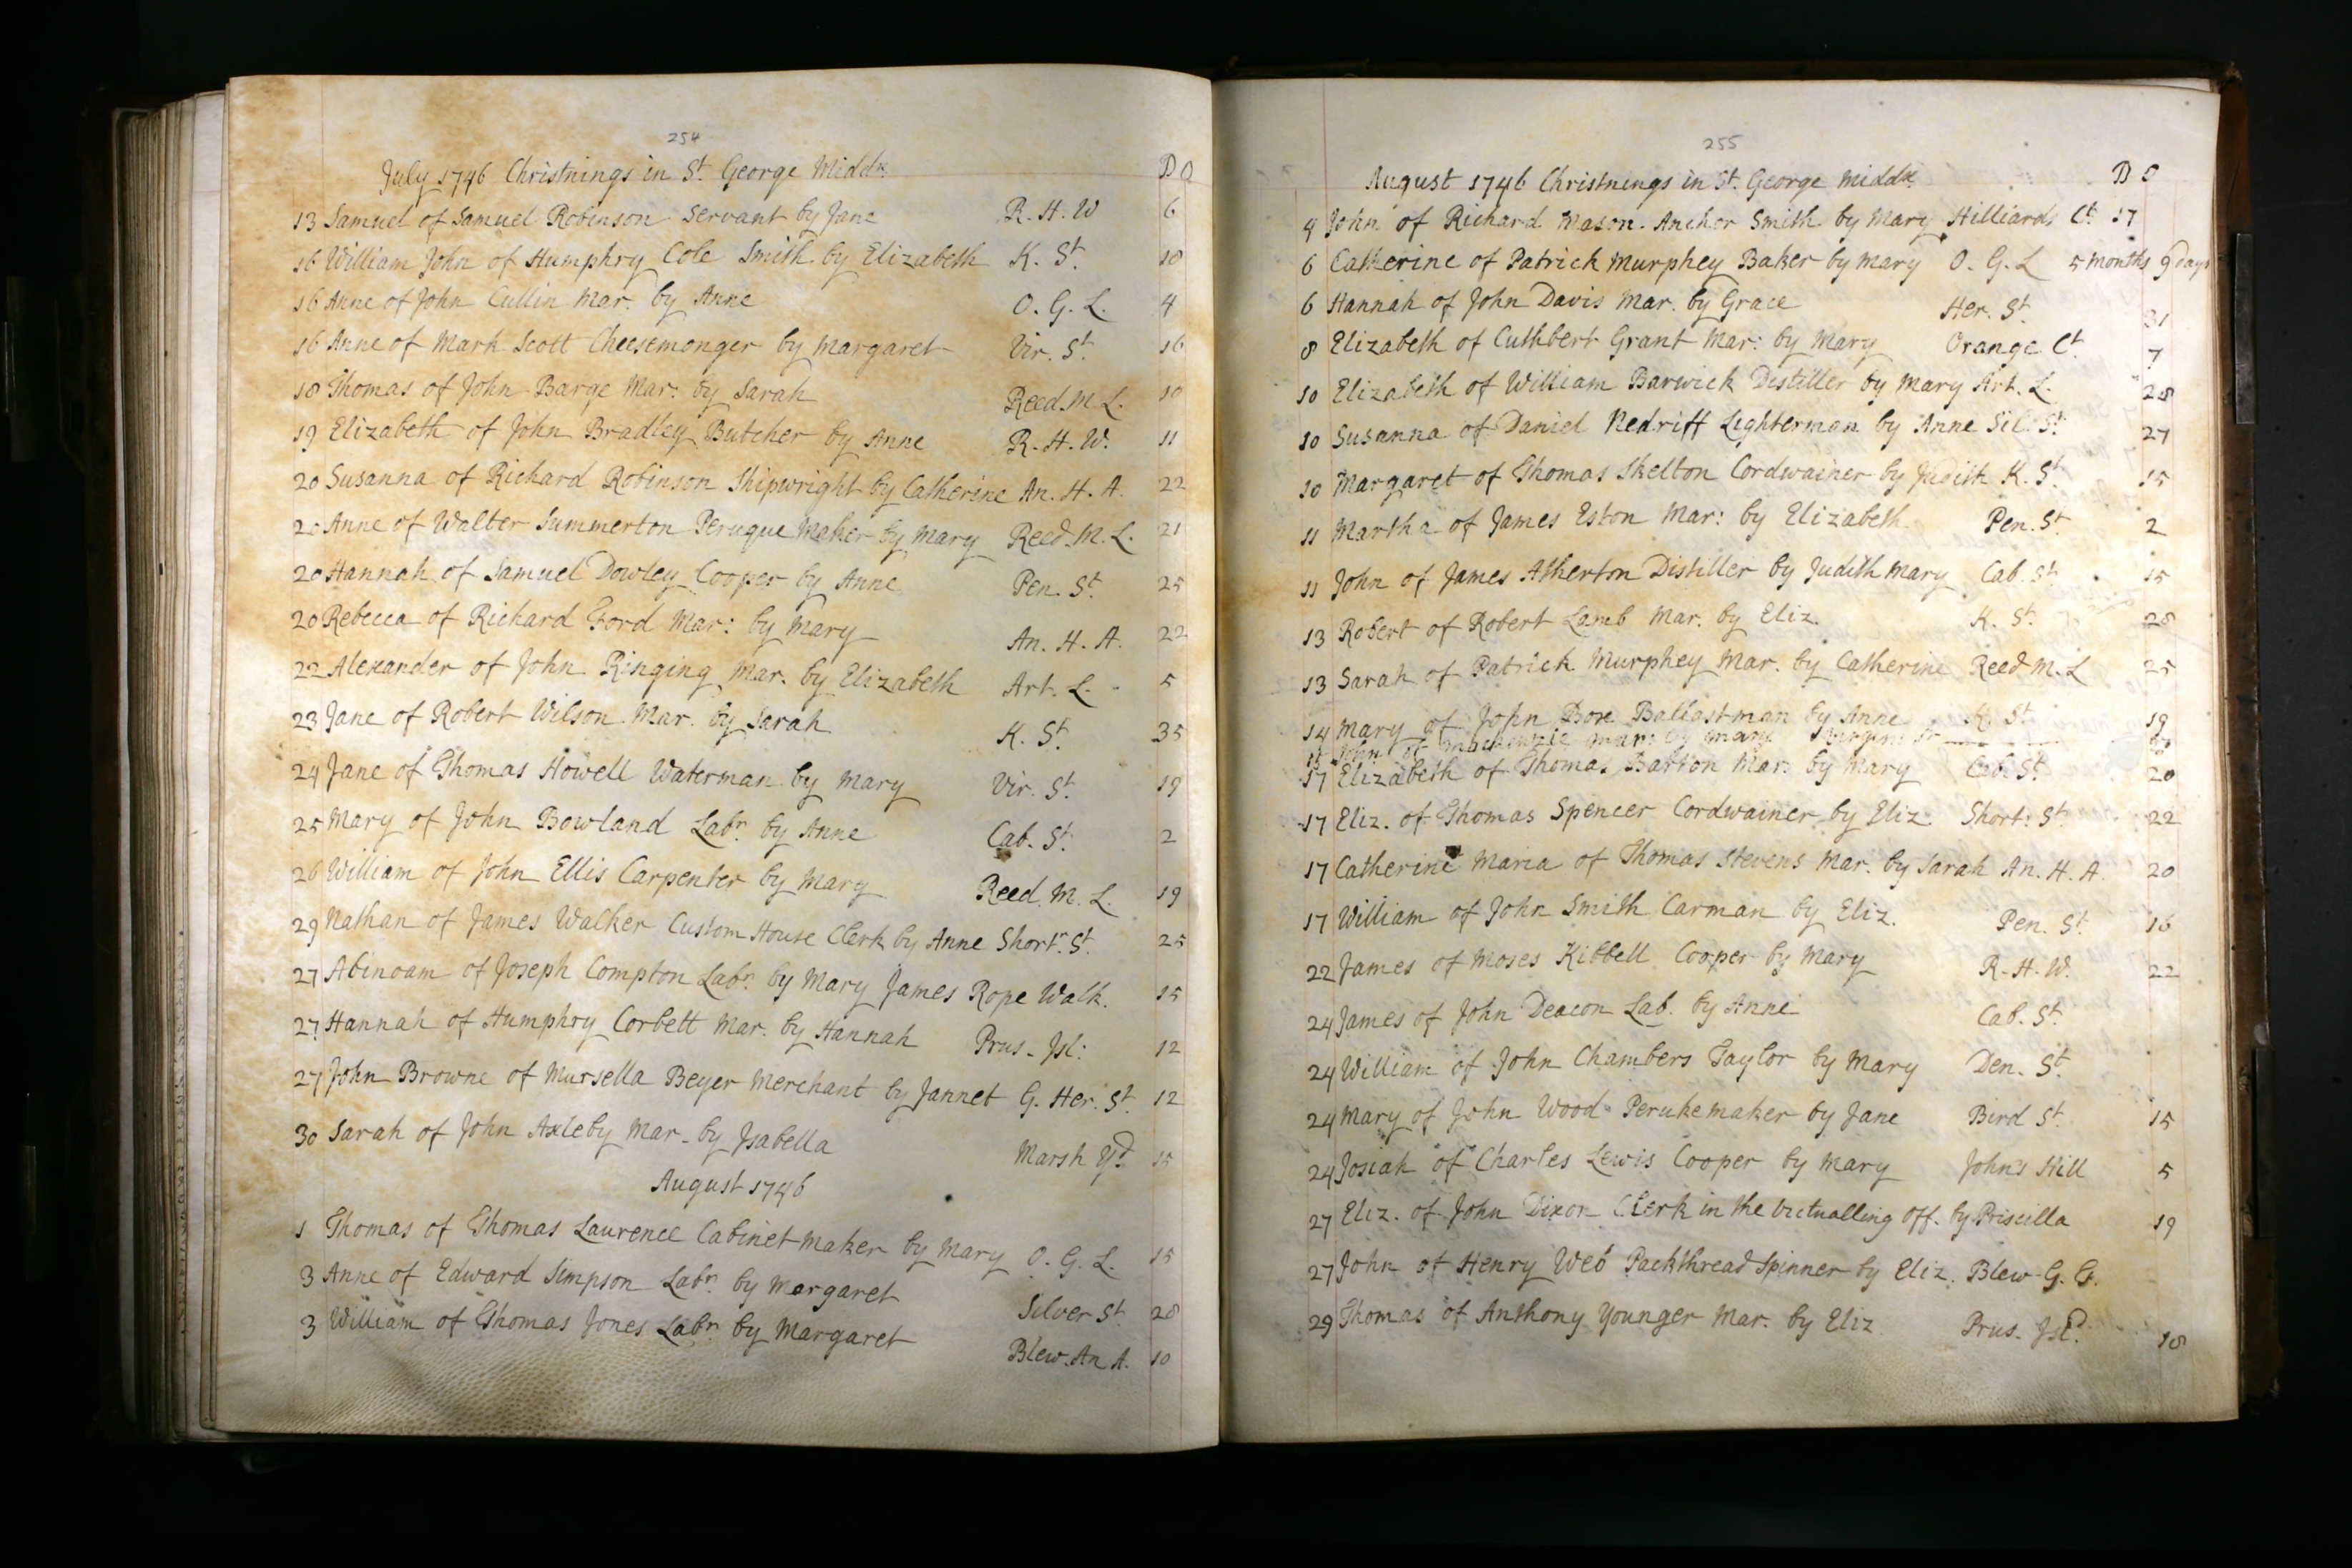 254
July 1746 Christnings in St. George Middx. D O
13 Samuel of Samuel Robinson Servant by Jane R. H. W 6
16 William John of Humphry Cole Smith by Elizabeth K. St. 10
16 Anne of John Cullin Mar. by Anne O. G. L. 4
16 Anne of Mark Scott Cheesemonger by Margaret Vir. St. 16
18 Thomas of John Barge Mar: by Sarah Reed. M L. 10
19 Elizabeth of John Bradley Butcher by Anne R. H. W. 11
20 Susanna of Richard Robinson Shipwright by Catherine An. H. A. 22
20 Anne of Walter Summerton Peruque Maker by Mary Reed. M. L. 21
20 Hannah of Samuel Dowley Cooper by Anne Pen. St. 25
20 Rebecca of Richard Ford Mar: by Mary An. H. A. 22
22 Alexander of John Ringing Mar. by Elizabeth Art. L. 5
23 Jane of Robert Wilson Mar. by Sarah K. St. 35
24 Jane of Thomas Howell Waterman by Mary Vir. St. 19
25 Mary of John Bowland Labr. by Anne Cab. St. 2
26 William of John Ellis Carpenter by Mary Reed. M. L. 19
29 Nathan of James Walker Custom House Clerk by Anne Shortr. St. 25
27 Abinoam of Joseph Compton Labr. by Mary James Rope Walk. 15
27 Hannah of Humphry Corbett Mar. by Hannah Prus. Isl: 12
27 John Browne of Mursella Beyer Merchant by Jannet G. Her. St. 12
30 Sarah of John Axleby Mar. by Isabella Marsh Yd. 15
August 1746
1 Thomas of Thomas Laurence Cabinet maker by Mary O. G. L. 15
3 Anne of Edward Simpson Labr. by Margaret Silver St. 28
3 William of Thomas Jones Labr. by Margaret Blew. An A. 10
255
August 1746 Christnings in St. George Middx. D O
4 John of Richard Mason Anchor Smith by Mary Hilliards Ct. 17
6 Catherine of Patrick Murphey Baker by Mary O. G. L 5 months 9 days
6 Hannah of John Davis Mar. by Grace Her. St. 31
8 Elizabeth of Cuthbert Grant Mar: by Mary Orange Ct. 7
10 Elizabeth of William Barwick Distiller by Mary Art. L. 28
10 Susanna of Daniel Nedriff Lighterman by Anne Sil. St. 27
10 Margaret of Thomas Skelton Cordwainer by Judith K. St. 15
11 Martha of James Eston Mar: by Elizabeth Pen. St. 2
11 John of James Atherton Distiller by Judith Mary Cab. St. 15
13 Robert of Robert Lamb Mar. by Eliz. K. St. 28
13 Sarah of Patrick Murphey Mar. by Catherine Reed M. L 25
14 Mary of John Bore Ballastman by Anne K. St. 19
John of Mackenzie Mar: by Mary
17 Elizabeth of Thomas Barton Mar: by Mary Cab. St. 20
17 Eliz. of Thomas Spencer Cordwainer by Eliz. Short: St. 22
17 Catherine Maria of Thomas Stevens Mar. by Sarah An. H. A. 20
17 William of John Smith Carman by Eliz. Pen. St. 16
22 James of Moses Kibbell Cooper by Mary R. H. W. 22
24 James of John Deacon Lab. by Anne Cab. St.
24 William of John Chambers Taylor by Mary Den. St.
24 Mary of John Wood Perukemaker by Jane Bird St. 15
24 Josiah of Charles Lewis Cooper by Mary John's Hill 5
27 Eliz. of John Dixon Clerk in the Victualling Off. by Priscilla 19
27 John of Henry Web Packthread Spinner by Eliz. Blew G.
29 Thomas of Anthony Younger Mar. by Eliz Prus. Isld. 18